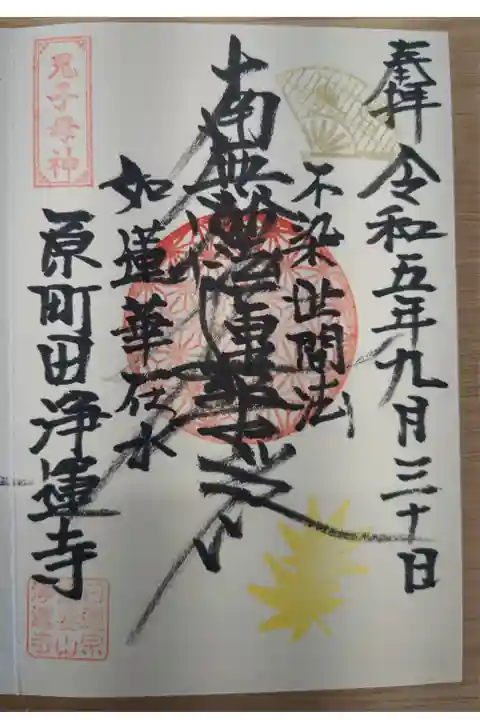 奉拝 令和五年九月三十日
不染世間法
南無妙法蓮華経
如蓮華在水
鬼子母神
原町田浄運寺
日蓮宗
山
浄運寺